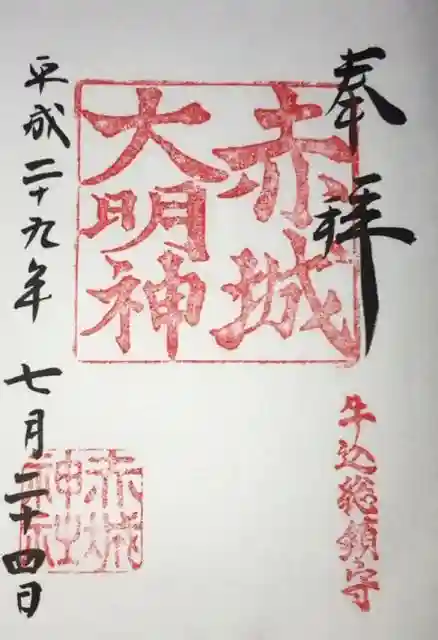 奉拝
牛込総鎮守
赤城
大明神
赤城
神社
平成二十九年
七月二十四日